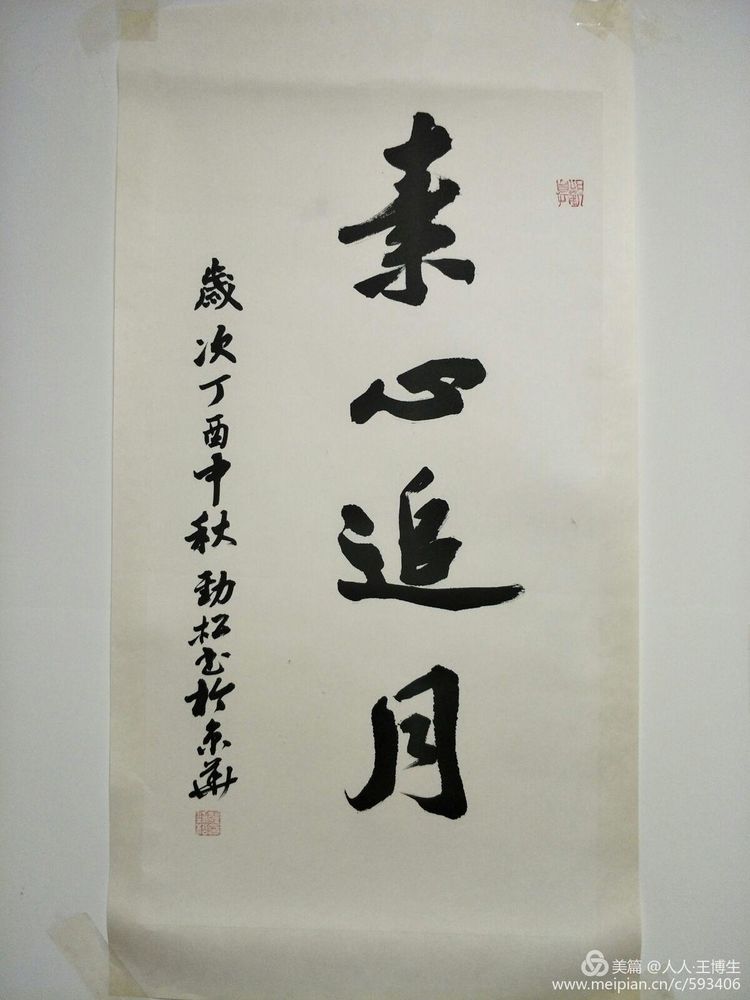 素心追月
歲次丁酉中秋劲松书於京華
美篇 @人人·王博生
www.meipian.cn/c/593406